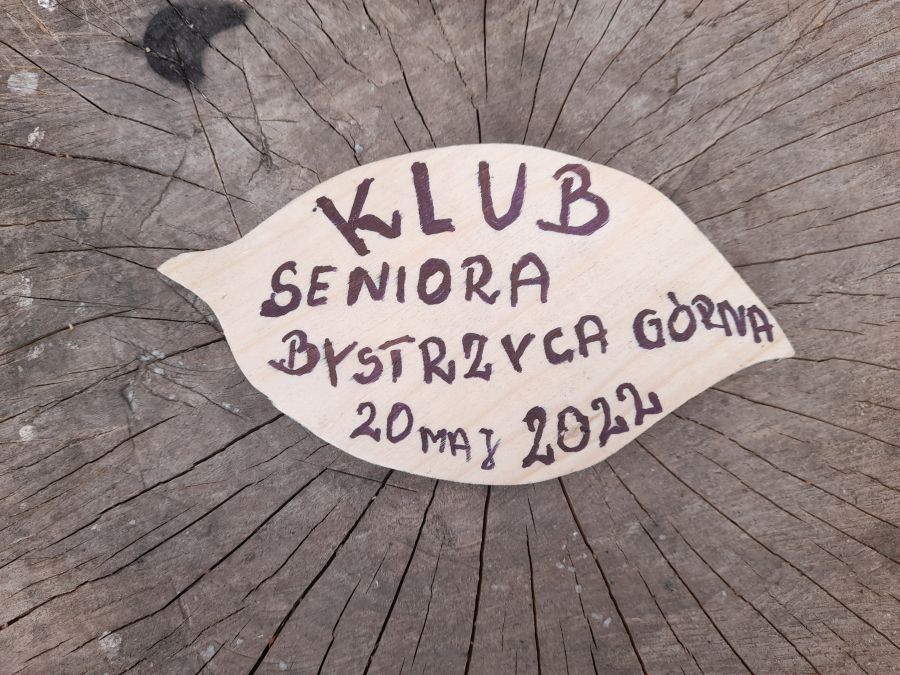 KLUB
SENIORA
BYSTRZYCA GÓRNA
20 MAJ 2022